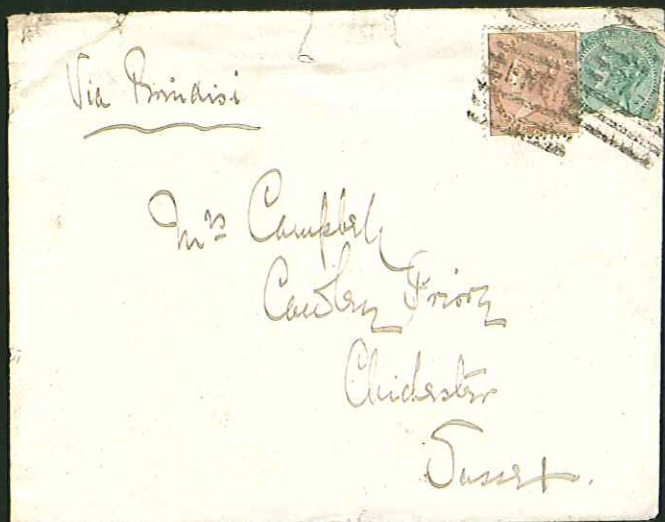 Via Brindisi
Mrs Campbell
Priory
Chichester
Sussex.